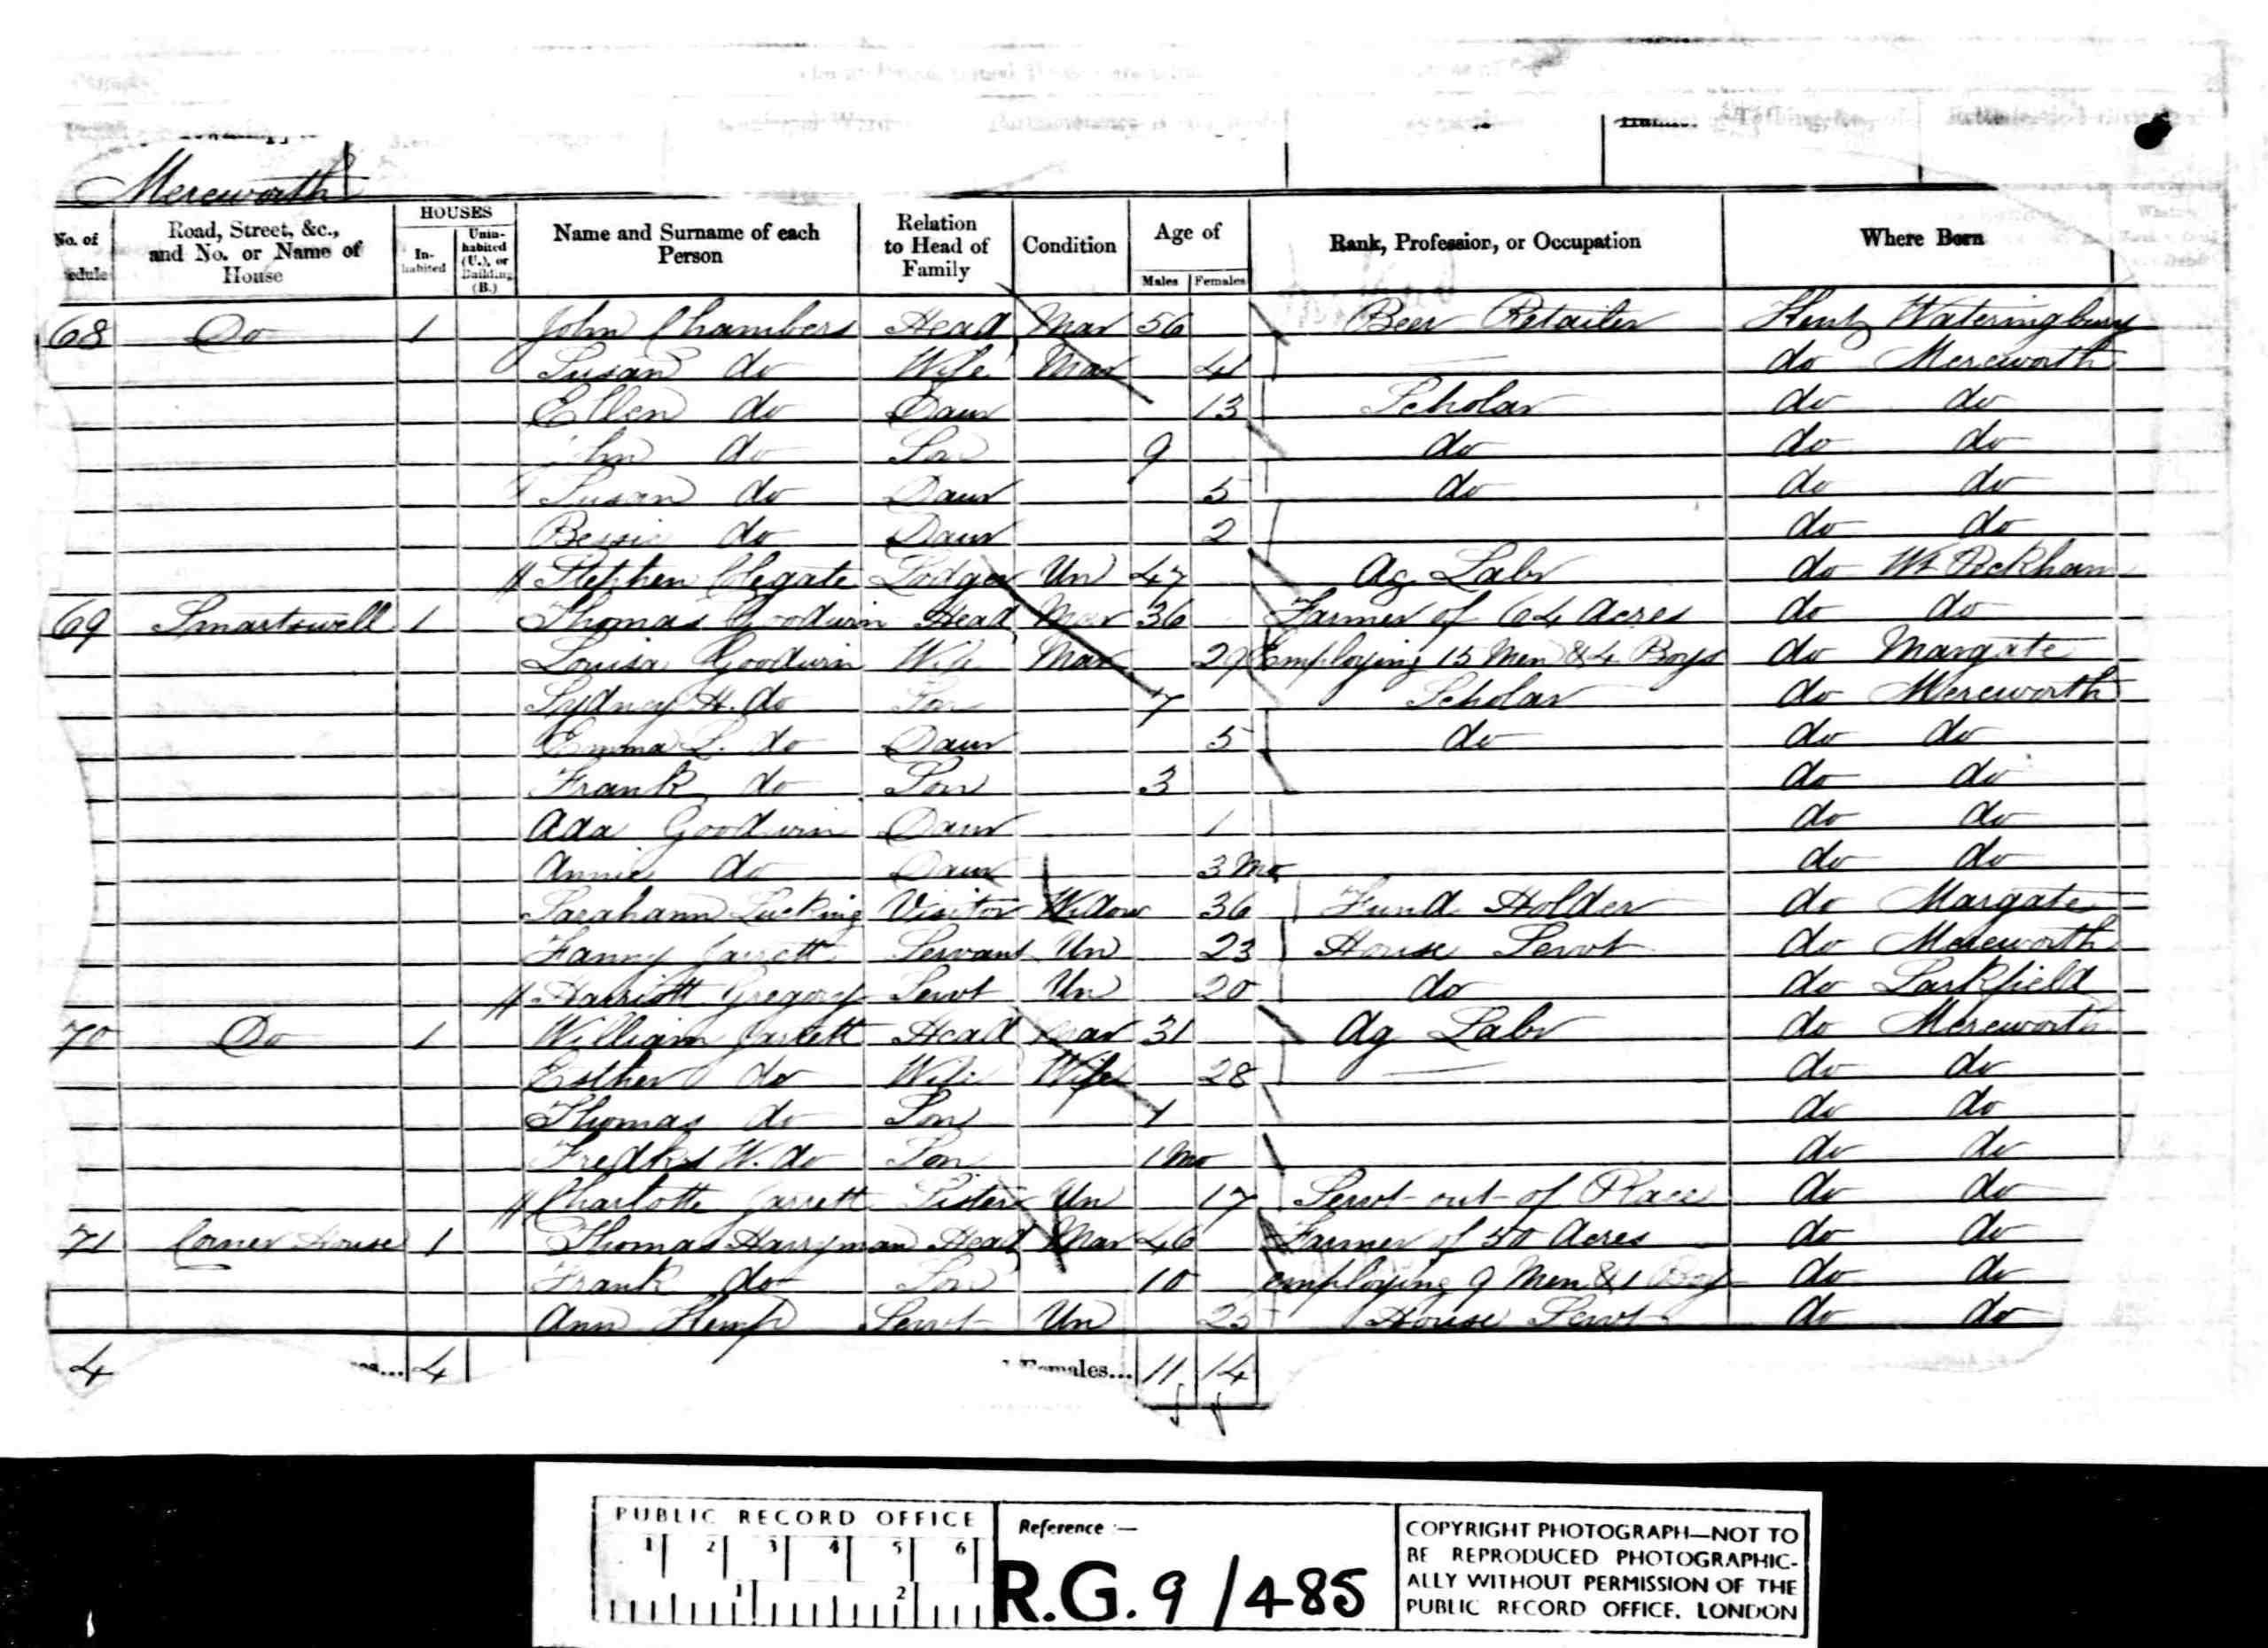 Mereworth
No. of
edule
Road, Street, &c.,
and No. or Name of
House
HOUSES
In-
habited
Unin-
habited
(U.), or
Building
(B.)
Name and Surname of each
Person
Relation
to Head of
Family
Condition
Age of
Males Females
Rank, Profession, or Occupation
Where Born
68 Do 1 John Chambers Head Mar 56 Beer Retailer Kent Wateringbury
Susan do Wife Mar 41 — do Mereworth
Ellen do Daur 13 Scholar do do
John do Son 9 do do do
Susan do Daur 5 do do do
Bessie do Daur 2 do do
Stephen Colegate Lodger Un 47 Ag Labr do Wt Peckham
69 Smartswell 1 Thomas Goodwin Head Mar 36 Farmer of 64 Acres do do
Louisa Goodwin Wife Mar 29 Employing 15 Men & 4 Boys do Margate
Sydney H. do Son 7 Scholar do Mereworth
Emma L. do Daur 5 do do do
Frank do Son 3 do do
Ada Goodwin Daur 1 do do
Annie do Daur 3 Mo do do
Sarahann Lucking Visitor Widow 36 Fund Holder do Margate
Fanny Jarrett Servant Un 23 House Servt do Mereworth
Harriott Gregory Servt Un 20 do do Larkfield
70 Do 1 William Jarrett Head Mar 31 Ag Labr do Mereworth
Esther do Wife Wife 28 — do do
Thomas do Son 1 do do
Fredk W. do Son 1 Mo do do
Charlotte Jarrett Sister Un 17 Servt out of Place do do
71 Corner House 1 Thomas Harryman Head Mar 46 Farmer of 50 Acres do do
Frank do Son 10 employing 9 Men & 1 Boy do do
Ann Kemp Servt Un 23 House Servt do do
4 4 Females... 11 14
PUBLIC RECORD OFFICE
1 2 3 4 5 6
1 2
Reference :—
R.G. 9 / 485
COPYRIGHT PHOTOGRAPH—NOT TO
BE REPRODUCED PHOTOGRAPHIC-
ALLY WITHOUT PERMISSION OF THE
PUBLIC RECORD OFFICE, LONDON